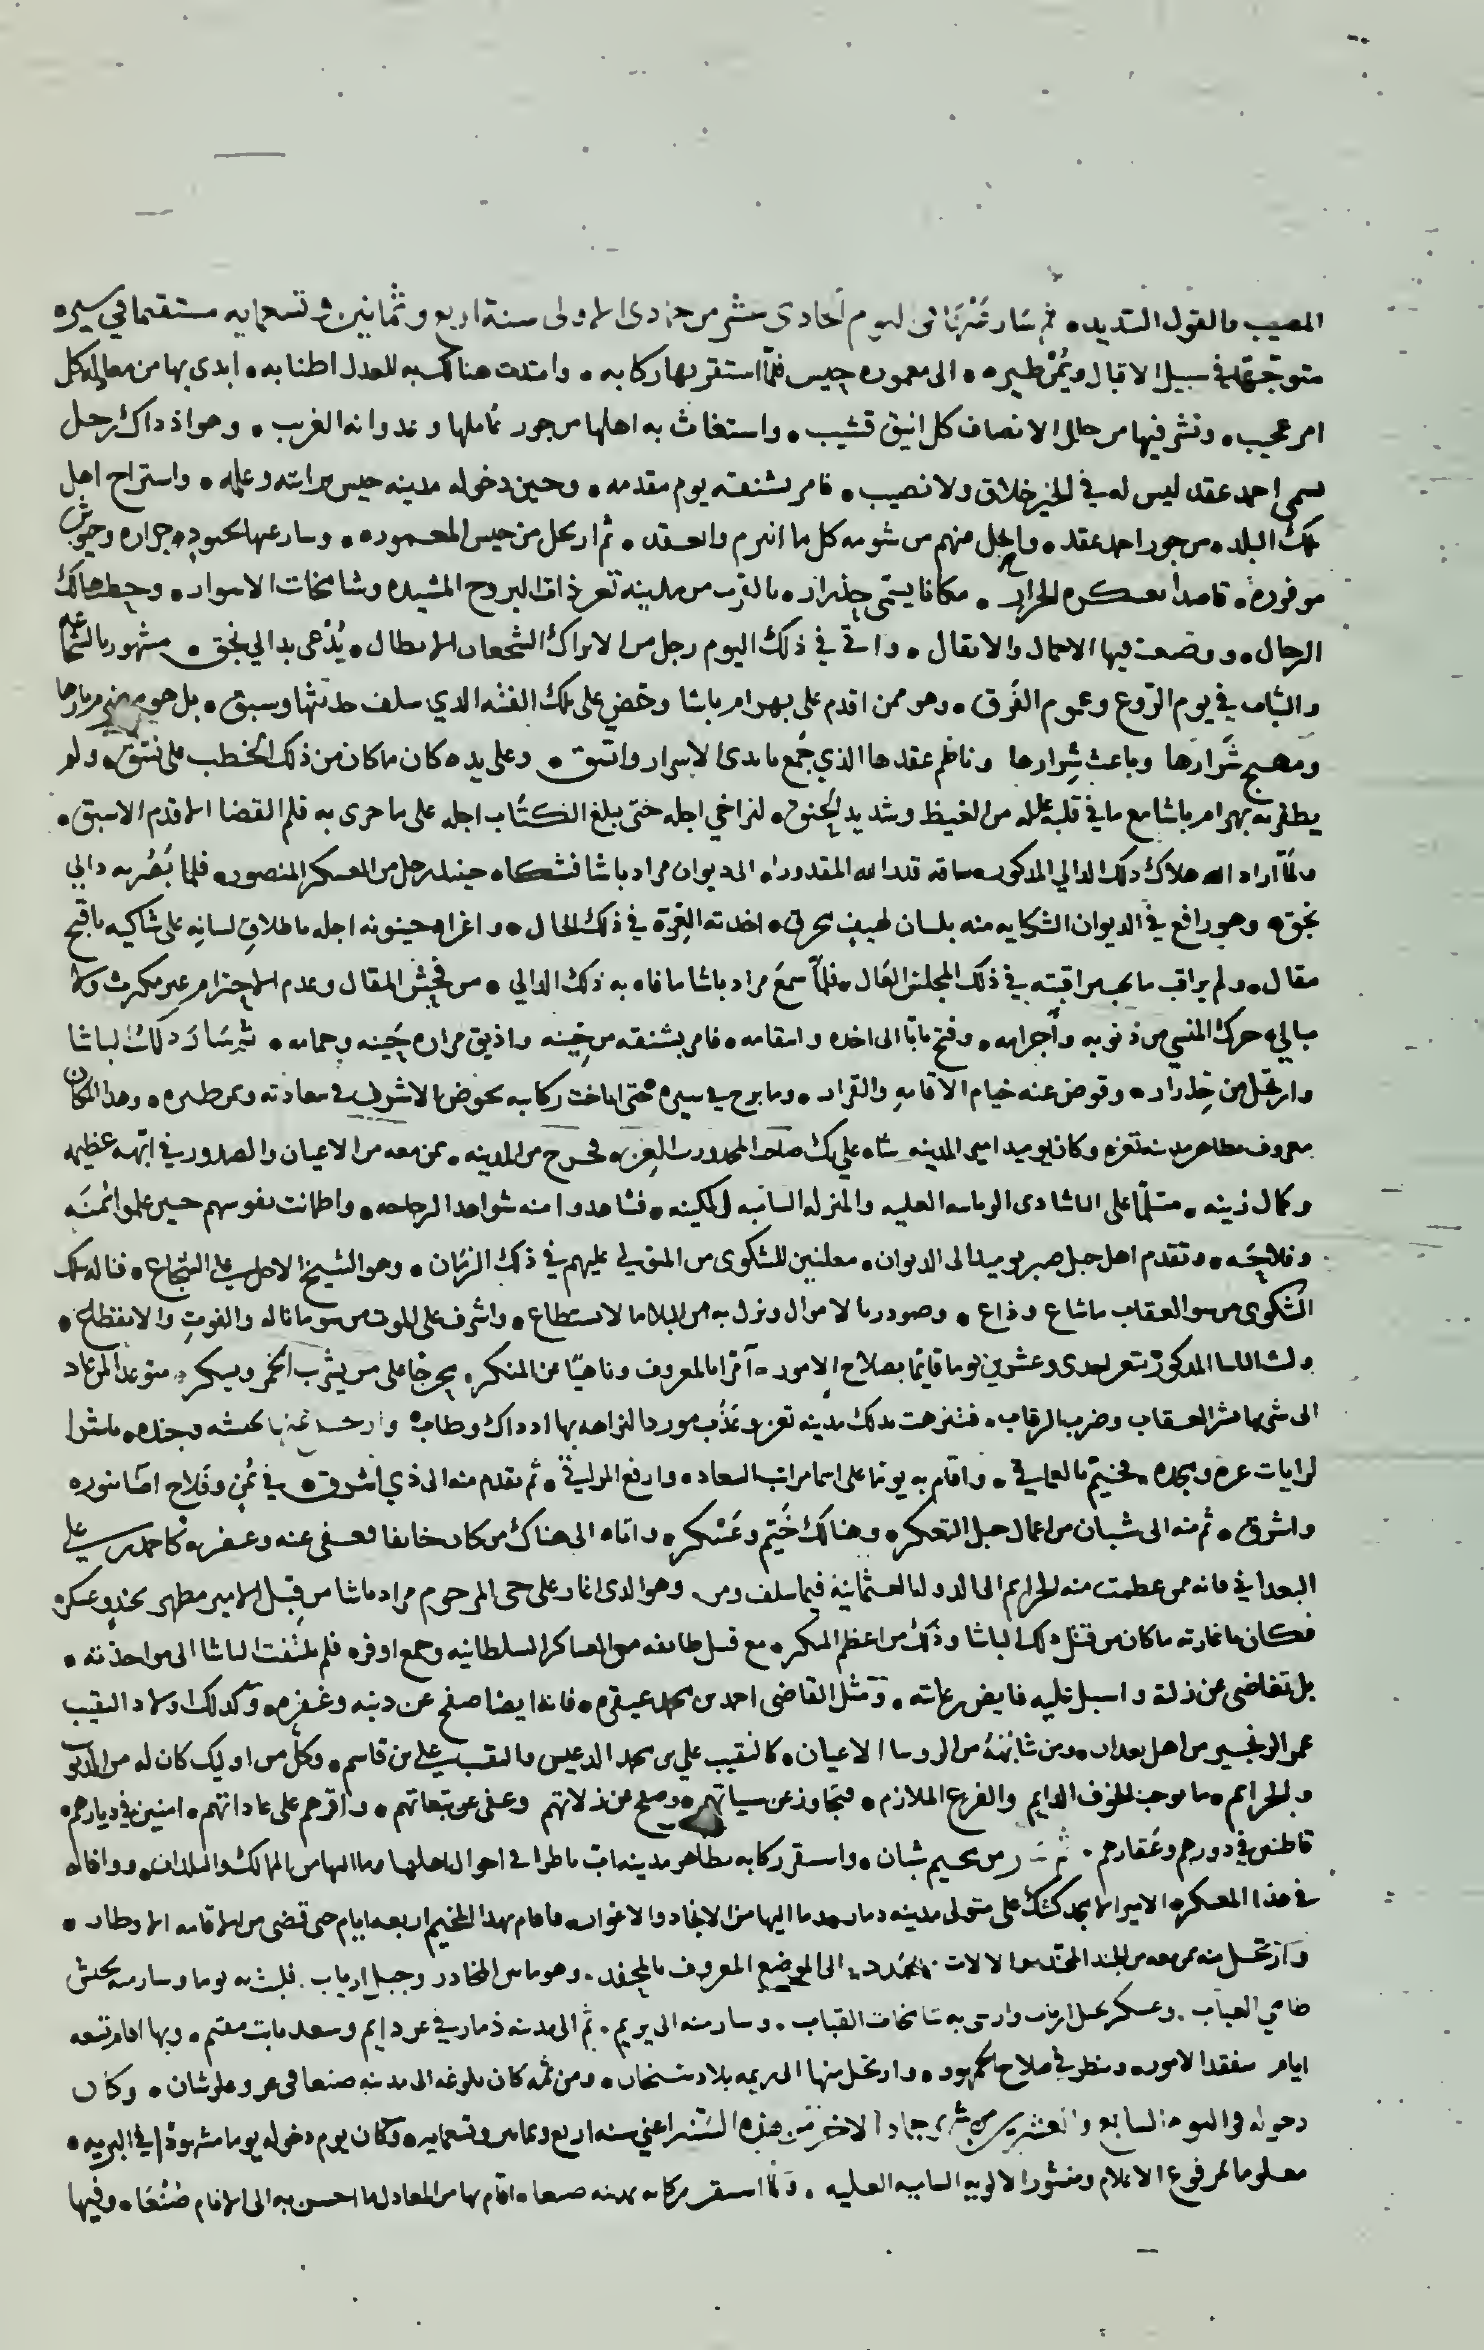 المصيب بالقول السديد ثم سار شرقًا في اليوم الحادي عشر من جمادى الاولى سنة اربع وثمانين وتسعمايه مستقيما في سيره
متوجّهًا في سبيل الاقبال ويُمن طيره الى معموره حيس فلمّا استقر بها ركابه وامتدت هنالك به للعدل اطنابه ابدى بها من معاليه كل
امر عجيب ونشر فيها من حلل الانصاف كل انيق قشيب واستغاث به اهلها من جور عاملها وعدوانه الغريب وهو اذ ذاك رجل
يسمى احمد عقد ليس له في الخير خلاق ولا نصيب فامر بشنقه يوم مقدمه وحين دخوله مدينه حيس وعلمه واستراح اهل
تلك البلد من جور احمد عقد وانحل منهم من شومه كل ما انبرم وانعقد ثم ارتحل من حيس المعموره وسار عنها بجنود جراره وجيوش
موفورة قاصدًا بعسكره الجرار مكانا يسمّى خذرار بالقرب من مدينه تعز ذات البروج المشيده وشامخات الاسوار وحط هنالك
الرحال ووضعت فيها الاحمال والاثقال واتى في ذلك اليوم رجل من الاتراك الشجعان الابطال يُدْعى بدالي نجق مشهور بالشجاعه
والثبات في يوم الرّوع وعموم الفَرق وهو ممن اقدم على بهرام باشا وحَض على تلك الفتنه الذي سلف حدثها وسبق بل هو
ومهيج شَرارَها وباعث شِرارها وناظم عقدها الذي جمع بايدي الاسرار واتسق وعلى يده كان ما كان من ذلك الخطب على نسق ولم
يظفر به بهرام باشا مع ما في قلبه عليه من الغيظ وشديد الحنق لتراخي اجله حتى يبلغ الكتاب اجله على ما جرى به قلم القضا الاقدم الاسبق
ولمّا اراد الله هلاك ذلك الدالي المذكور ساقه قدر الله المقدور الى ديوان مراد باشا فشكاه حينئذ رجل من العسكر المنصور فلما بَصُر به دالي
نجق وهو رافع في الديوان الشكايه منه بلسان لهيف محرق اخذته العِزة في ذلك الحال واغراه حينونه اجله باطلاق لسانه على شاكيه باقبح
مقال ولم يراقب ما يجب مراقبته في ذلك المجلس العال فلمّا سمعَ مراد باشا ما فاه به ذلك الدالي من فحش المقال وعدم الاحترام غير مكترث ولا
مبالي حرك المنسي من ذنوبه واجرامه وفتح بابًا الى اخذه وانتقامه فامر بشنقه من حينه واذيق مراره حَينه وحمامه ثم سَار ذلك الباشا
وارتحل من خذرار وقوض عنه خيام الاقامه والقرار وما برح في سيره حتى اناخت ركابه بحوض الاشرف في سعادته ويمن طيره وهذا المكان
معروف بظاهر مدينه تعز وكان يوميد امير المدينه علي بك صاحب العزيز فخرج من المدينه بمن معه من الاعيان والصدور في ابّهه عظيمه
وكمال زينه مسلّمًا على الباشا ذي الرياسه العليه والمنزله الساميه المكينه فشاهدوا منه شواهد الرجاحه واطمانت نفوسهم حين علموا يُمنَه
وفلاحَه وتقدم اهل جبل صبر يوميد الى الديوان معلنين للشكوى من المتولي عليهم في ذلك الزمان وهو الشيخ الاجل علي الشجاع فناله بتلك
الشكوى من سو العقاب ما شاع وذاع وصودر بالاموال ونزل به من البلا ما لا يستطاع واشرف على الموت من سو ما ناله والفوت والانقطاع
ولبث الباشا المذكور بتعز احدى وعشرين يوما قايمًا بصلاح الامور آمرًا بالمعروف وناهيًا عن المنكر محرجًا على من يشرب الخمر ويسكر متوعدًا لمن عاد
الى شربها بشر العقاب وضرب الرقاب فتنزهت بذلك مدينه تعز وعَذُب مورد النزاهه بها اذ ذاك وطاب وارتحل عنها بجيشه وجنده ناشرا
لرايات عزه ومجده فخيّم بالعماقي واقام به يومًا على اسما مراتب السعاد وارفع المراقي ثم تقدم منه الى ذي اشرق في يُمن وفَلاح اضا بنوره
واشرق ثم منه الى شبان من اعمال جبل التعكر وهنالك خَيّم وعَسْكر واتاه الى هناك من كان خايفا فعفى عنه وغفر كاحمد بن علي
البعداني فانه ممن عظمت منه الجرايم الى الدوله العثمانية فيما سلف وهو الذي اغار على المرحوم مراد باشا من قِبَل الامير مطهر بجند وعسكر
فكان باغارته ما كان من قتل ذلك الباشا وذلك من اعظم المنكر مع قتل طايفه من العساكر السلطانيه وجمع اوفر فلم يلتفت الباشا الى مواخذته
بل تغاضى عن ذلة واسبل عليه فايض رعايته ومثل القاضي احمد بن محمد عيقره فانه ايضا صفح عن ذنبه وغفره وكذلك اولاد النقيب
عمر من اهل بعدان ومن شابَههُ من الروسا الاعيان كالنقيب علي بن محمد الدعيس والنقيب علي بن قاسم وكل من اوليك كان له من الذنوب
والجرايم ما يوجب الخوف الدايم والفزع الملازم فتجاوز عن سياتهم وصفح عن ذلاتهم وعفى عن تبعاتهم واقرهم على عاداتهم امنين في ديارهم
قاطنين في دورهم وعَقارهم ثم سَار من مخيم شبان واستقر ركابه بظاهر مدينه اب ناظرا في احوال اهلها وما اليها من الممالك والبلدان ووافاه
في هذا المعسكر الامير الامجد كتك علي متولى مدينه ذمار وما اليها من الانجاد والاغوار فاقام بهذا المخيم اربعه ايام حتى قضى من الاقامه الاوطار
وارتحل منه بمن معه من الجند الى الموضع المعروف بالمحفد وهو ما بين المخادر وجبل ارياب فلبث به يوما وسار منه بجيش
طامي العباب وعسكر وارسى به شامخات القباب وسار منه الى يريم ثم الى مدينه ذمار في عز دايم وسعد ثابت مقيم وبها اقام تسعه
ايام متفقدا لامور ونظر في صلاح الجمهور وارتحل منها الى ريمه بلاد سنحان ومن ثمه كان بلوغه الى مدينه صنعا في عز وعلو شان وكان
دخوله في اليوم السابع والعشرين من شهر جمادى الاخرى من هذه السّنه اعني سنه اربع وثمانين وتسعمايه وكان يوم دخوله يوما مشهودًا في البريه
معلوما بمرفوع الاعلام ومنشور الالويه الساميه العليه ولمّا استقر ركابه بمدينه صنعا اقام بها من المعادل ما احسن به الى الانام صُنْعَا وفيها